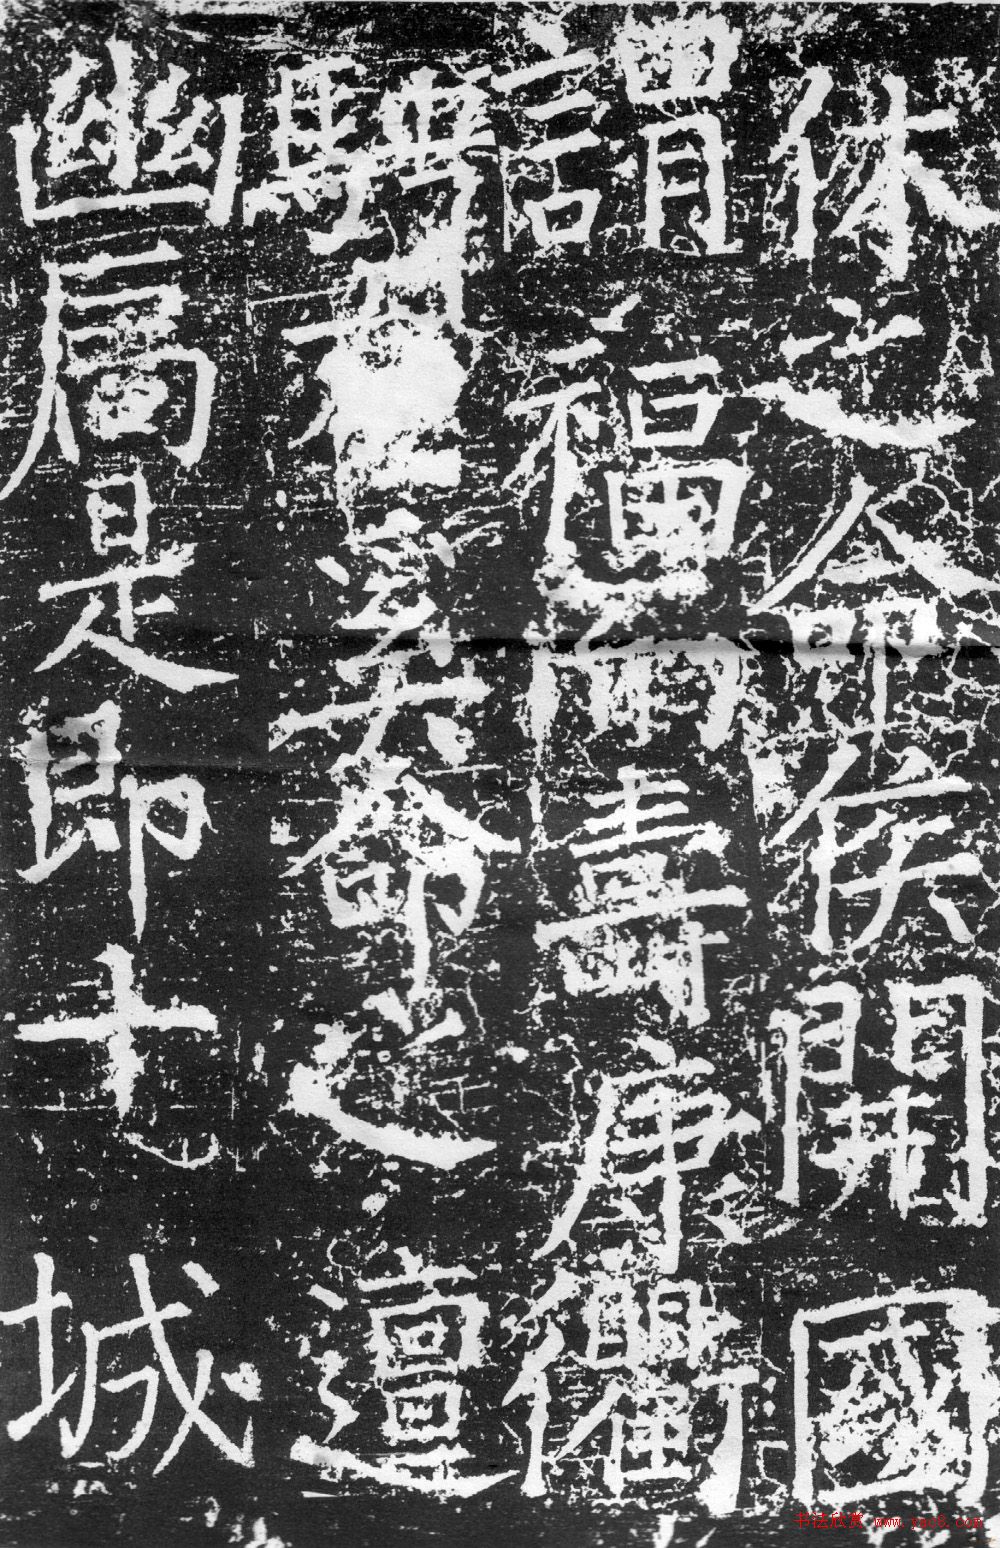 休之命侯開國
謂福而壽康衢
騁奚命之邅
幽扃是即十城
书法欣赏 www.yac8.com